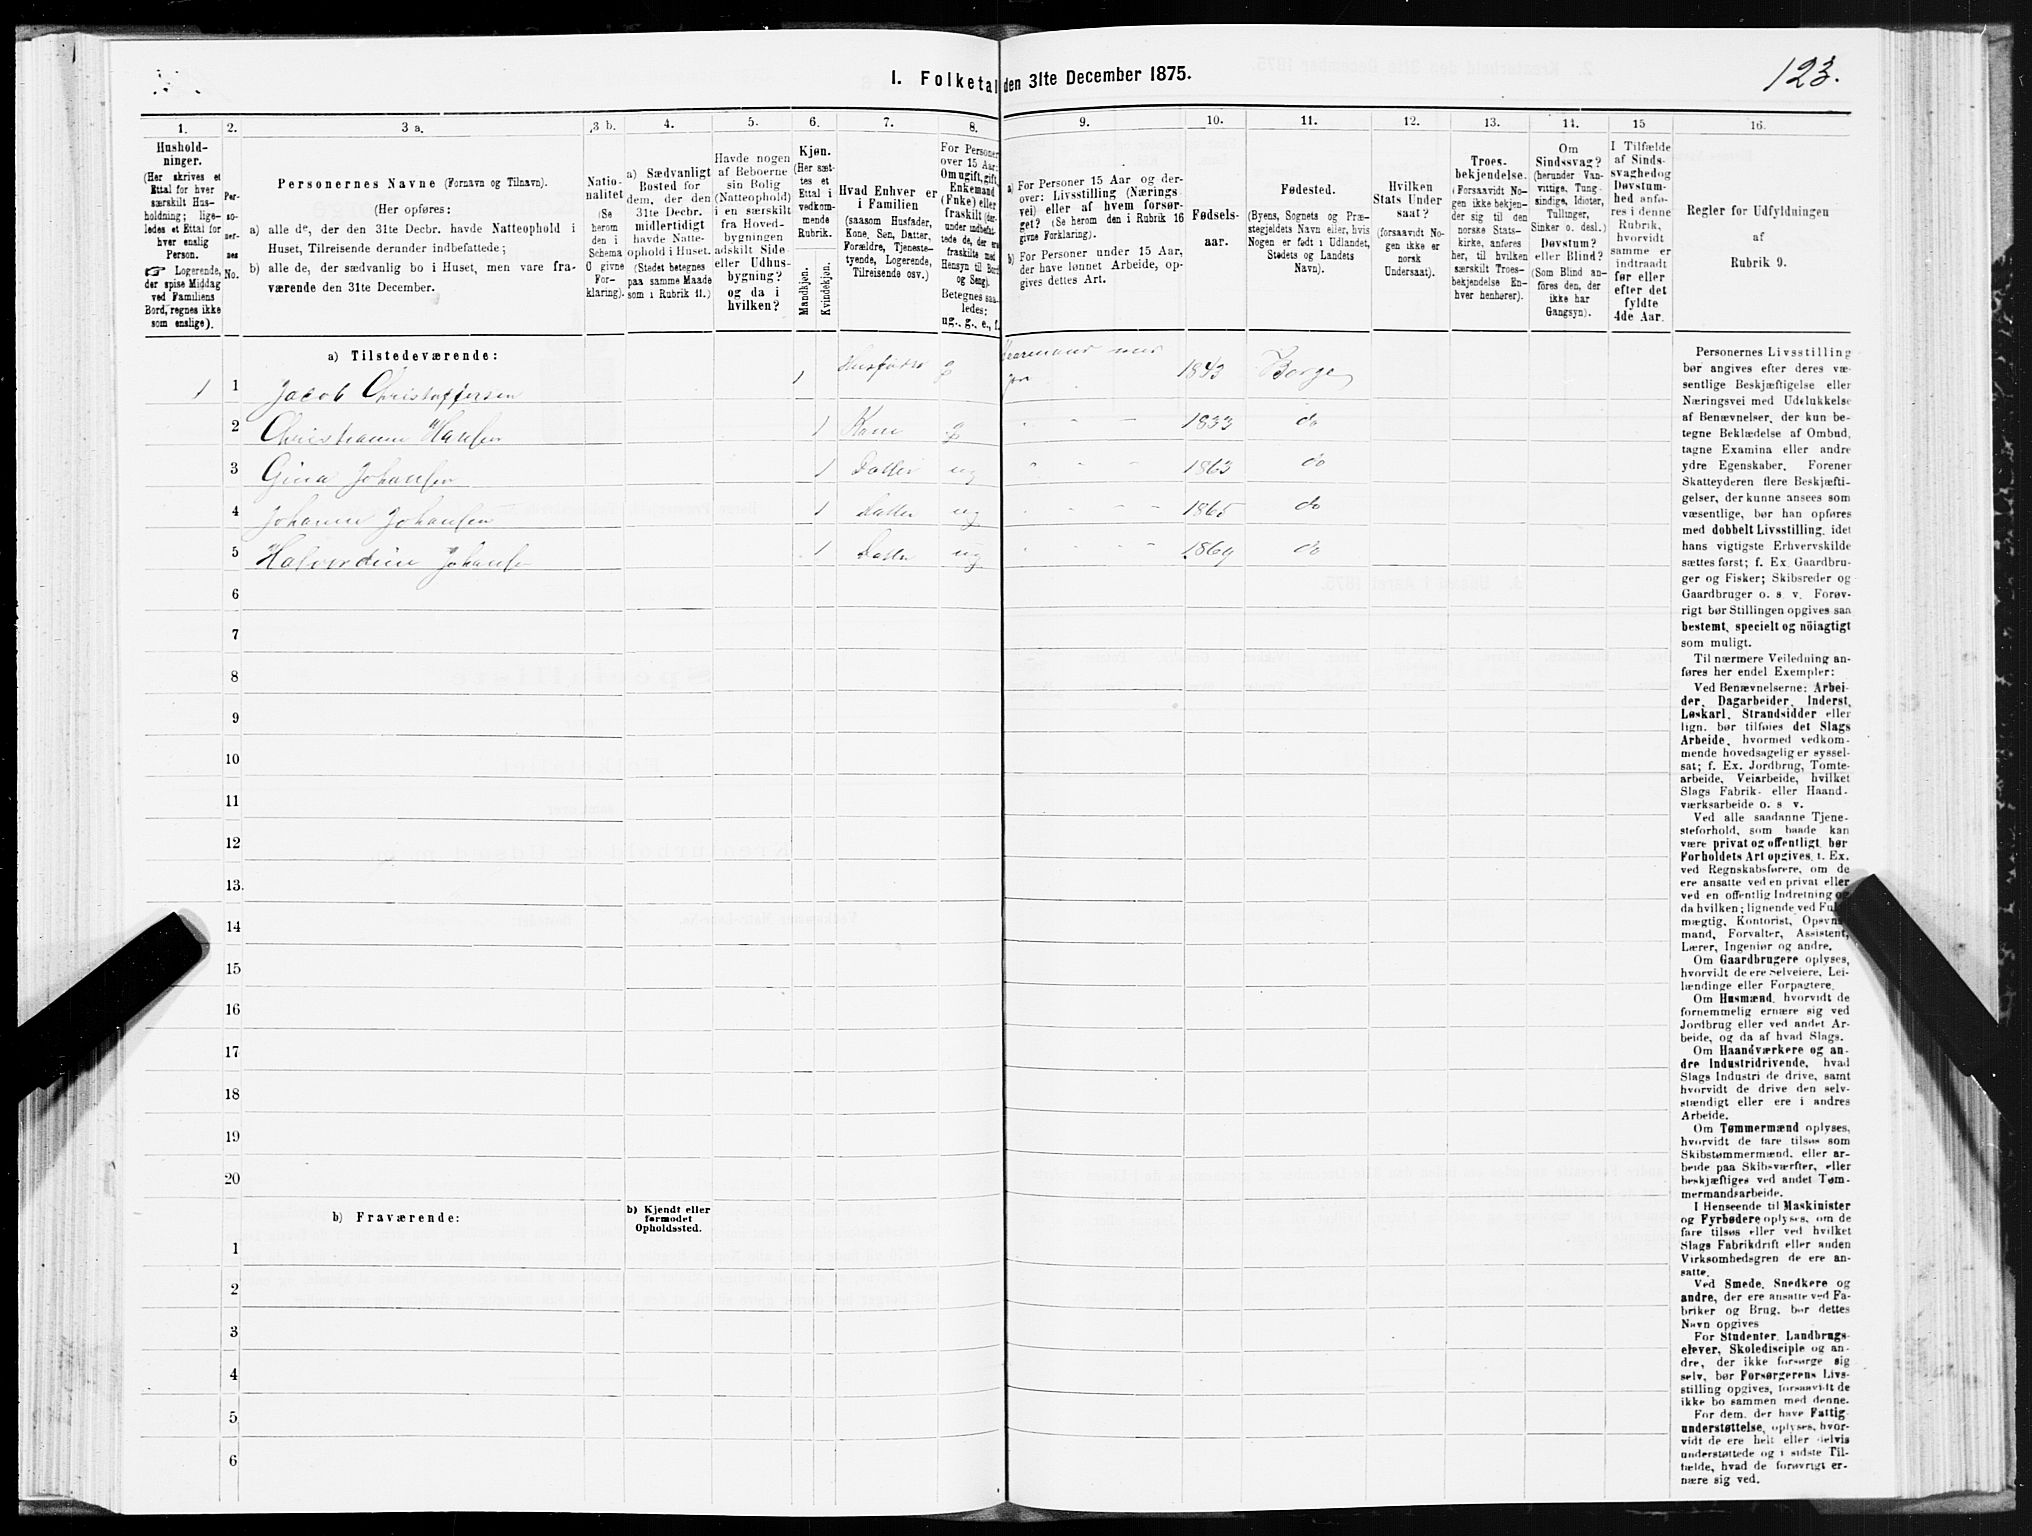 I. Folketal den 31te December 1875.
123.
1.
2.
3 a.
3 b.
4.
5.
6.
7.
8.
9.
10.
11.
12.
13.
14.
15
16.
Hushold-
ninger.
(Her skrives et
Ettal for hver
særskilt Hus-
holdning; lige-
ledes et Ettal for
hver enslig
Person.
☞ Logerende,
der spise Middag
ved Familiens
Bord, regnes ikke
som enslige).
Per-
so-
ner-
nes
No.
Personernes Navne (Fornavn og Tilnavn).
(Her opføres:
a) alle de, der den 31te Decbr. havde Natteophold i
Huset, Tilreisende derunder indbefattede;
b) alle de, der sædvanlig bo i Huset, men vare fra-
værende den 31te December.
Natio-
nalitet
(Se
herom
den i
Schema
O givne
For-
klaring).
a) Sædvanligt
Bosted for
dem, der den
31te Decbr.
midlertidigt
havde Natte-
ophold i Huset.
(Stedet betegnes
paa samme Maade
som i Rubrik 11.)
Havde nogen
af Beboerne
sin Bolig
(Natteophold)
i en særskilt
fra Hoved-
bygningen
adskilt Side-
eller Udhus-
bygning?
og da i
hvilken?
Kjøn.
(Her sæt-
tes et
Ettal i
vedkom-
mende
Rubrik.
Mandkjøn.
Kvindekjøn.
Hvad Enhver er
i Familien
(saasom Husfader,
Kone, Søn, Datter,
Forældre, Tjeneste-
tyende, Logerende,
Tilreisende osv.)
For Personer
over 15 Aar:
Om ugift, gift,
Enkemand
(Enke) eller
fraskilt (der-
under indbefat-
tede de, der ere
fraskilte med
Hensyn til Bord
og Seng).
Betegnes saa-
ledes:
ug., g., e., f.
a) For Personer 15 Aar og der-
over: Livsstilling (Nærings-
vei) eller af hvem forsør-
get? (Se herom den i Rubrik 16
givne Forklaring).
b) For Personer under 15 Aar,
der have lønnet Arbeide, op-
gives dettes Art.
Fødsels-
aar.
Fødested.
(Byens, Sognets og Præ-
stegjeldets Navn eller, hvis
Nogen er født i Udlandet,
Stedets og Landets
Navn).
Hvilken
Stats Under
saat?
(forsaavidt No-
gen ikke er
norsk
Undersaat).
Troes-
bekjendelse.
(Forsaavidt No-
gen ikke bekjen-
der sig til den
norske Stats-
kirke, anføres
her, til hvilken
særskilt Troes-
bekjendelse En-
hver henhører).
Om
Sindssvag?
(herunder Van-
vittige, Tung-
sindige, Idioter,
Tullinger,
Sinker o. desl.)
Døvstum?
eller Blind?
(Som Blind an-
føres den, der
ikke har
Gangsyn).
I Tilfælde
af Sinds-
svaghed og
Døvstum-
hed anfø-
res i denne
Rubrik,
hvorvidt
samme er
indtraadt
før eller
efter det
fyldte
4de Aar.
Regler for Udfyldningen
af
Rubrik 9.
a) Tilstedeværende:
1 1 Jacob Christoffersen 1 Husfader g 1843 Borge
2 Christianne Hansen 1 Kone g " - - 1833 do
3 Gina Johansen 1 Datter ug " " - 1863 do
4 Johanne Johansen 1 Datter ug " - - 1865 do
5 Halvordine Johansen 1 Datter ug " - - - 1869 do
6
7
8
9
10
11
12
13.
14
15
16
17
18
19
20
b) Fraværende:
b) Kjendt eller
formodet
Opholdssted.
1
2
3
4
5
6
Personernes Livsstilling
bør angives efter deres væ-
sentlige Beskjæftigelse eller
Næringsvei med Udelukkelse
af Benævnelser, der kun be-
tegne Beklædelse af Ombud,
tagne Examina eller andre
ydre Egenskaber. Forener
Skatteyderen flere Beskjæfti-
gelser, der kunne ansees som
væsentlige, bør han opføres
med dobbelt Livsstilling, idet
hans vigtigste Erhvervskilde
sættes først; f. Ex. Gaardbru-
ger og Fisker; Skibsreder og
Gaardbruger o. s. v. Forøv-
rigt bør Stillingen opgives saa
bestemt, specielt og nöiagtigt
som muligt.
Til nærmere Veiledning an-
føres her endel Exempler:
Ved Benævnelserne: Arbei-
der, Dagarbeider, Inderst,
Løskarl, Strandsidder eller
lign. bør tilføies det Slags
Arbeide, hvormed vedkom-
mende hovedsagelig er syssel-
sat; f. Ex. Jordbrug, Tomte-
arbeide, Veiarbeide, hvilket
Slags Fabrik- eller Haand-
værksarbeide o. s. v.
Ved alle saadanne Tjene-
steforhold, som baade kan
være privat og offentligt, bør
Forholdets Art opgives, f. Ex.
ved Regnskabsførere, om de
ere ansatte ved en privat eller
ved en offentlig Indretning og
da hvilken; lignende ved Fuld-
mægtig, Kontorist, Opsyns-
mand, Forvalter, Assistent,
Lærer, Ingeniør og andre.
Om Gaardbrugere oplyses,
hvorvidt de ere Selveiere, Lei-
lændinge eller Forpagtere.
Om Husmænd, hvorvidt de
fornemmelig ernære sig ved
Jordbrug eller ved andet Ar-
beide, og da af hvad Slags.
Om Haandværkere og an-
dre Industridrivende, hvad
Slags Industri de drive, samt
hvorvidt de drive den selv-
stændigt eller ere i andres
Arbeide.
Om Tømmermænd oplyses,
hvorvidt de fare tilsøs som
Skibstømmermænd, eller ar-
beide paa Skibsværfter, eller
beskjæftiges ved andet Tøm-
mermandsarbeide.
I Henseende til Maskinister
og Fyrbødere oplyses, om de
fare tilsøs eller ved hvilket
Slags Fabrikdrift eller anden
Virksomhedsgren de ere an-
satte.
Ved Smede, Snedkere og
andre, der ere ansatte ved Fa-
briker og Brug, bør dettes
Navn opgives
For Studenter, Landbrugs-
elever, Skoledisciple og an-
dre, der ikke forsørge sig
selv, bør Forsørgerens Livs-
stilling opgives, forsaavidt de
ikke bo sammen med denne.
For dem, der have Fattig-
understøttelse, oplyses, hvor-
vidt de ere helt eller delvis
understøttede og i sidste Til-
fælde, hvad de forøvrigt er-
nære sig ved.